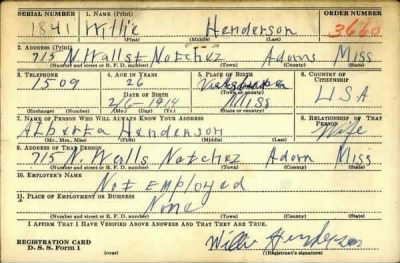 SERIAL NUMBER 1. NAME (Print) ORDER NUMBER
1841 Willie Henderson 3660
(First) (Middle) (Last)
2. ADDRESS (Print)
715 N Wall St Natchez Adams Miss
(Number and street or R. F. D. number) (Town) (County) (State)
3. TELEPHONE 4. AGE IN YEARS 5. PLACE OF BIRTH 6. COUNTRY OF CITIZENSHIP
1509 26
DATE OF BIRTH (Town or county)
2/6-1914 Miss USA
(Exchange) (Number) (Mo.) (Day) (Yr.) (State or country)
7. NAME OF PERSON WHO WILL ALWAYS KNOW YOUR ADDRESS 8. RELATIONSHIP OF THAT PERSON
Alberta Henderson Wife
(Mr., Mrs., Miss) (First) (Middle) (Last)
9. ADDRESS OF THAT PERSON
715 N. Walls Natchez Adam Miss
(Number and street or R. F. D. number) (Town) (County) (State)
10. EMPLOYER'S NAME
Not Employed
11. PLACE OF EMPLOYMENT OR BUSINESS
None
(Number and street or R. F. D. number) (Town) (County) (State)
I AFFIRM THAT I HAVE VERIFIED ABOVE ANSWERS AND THAT THEY ARE TRUE.
REGISTRATION CARD
D. S. S. Form 1
Willie Henderson
(Registrant's signature)